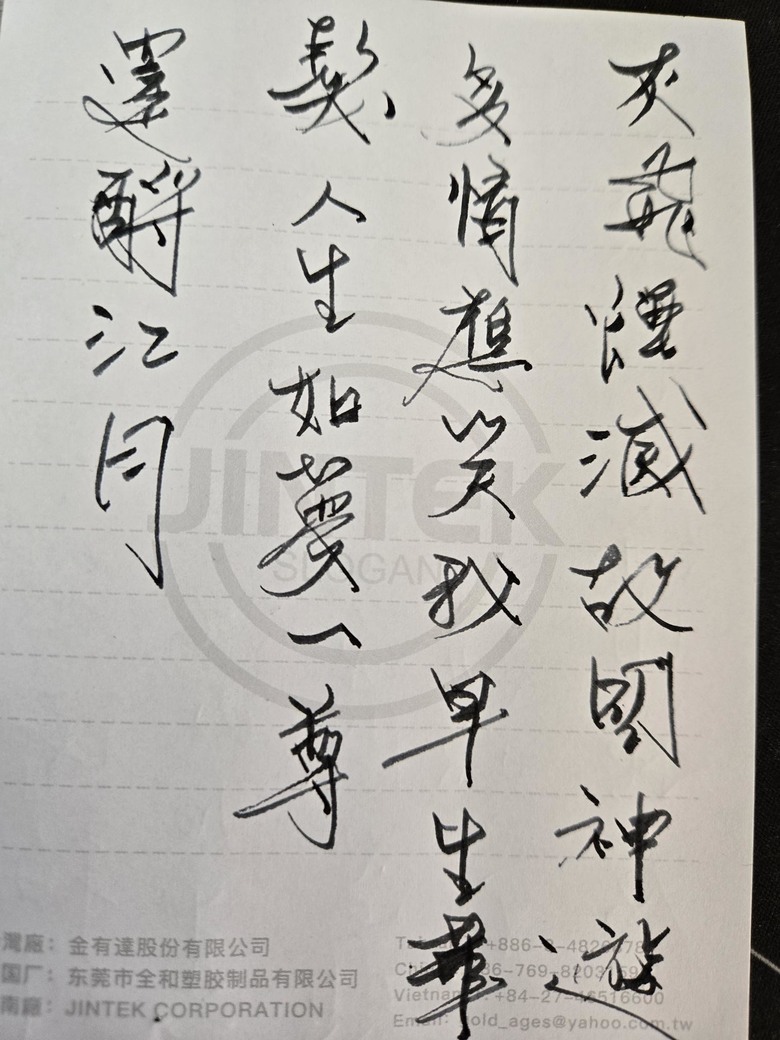 灰飛煙滅故國神遊
多情應笑我早生華
髮人生如夢一尊
還酹江月
JINTEK
SLOGAN
灣廠：金有達股份有限公司
国厂：东莞市全和塑胶制品有限公司
南廠：JINTEK CORPORATION
+886-3-482
86-769-8203
Vietnam +84-27-46516600
Email: gold_ages@yahoo.com.tw